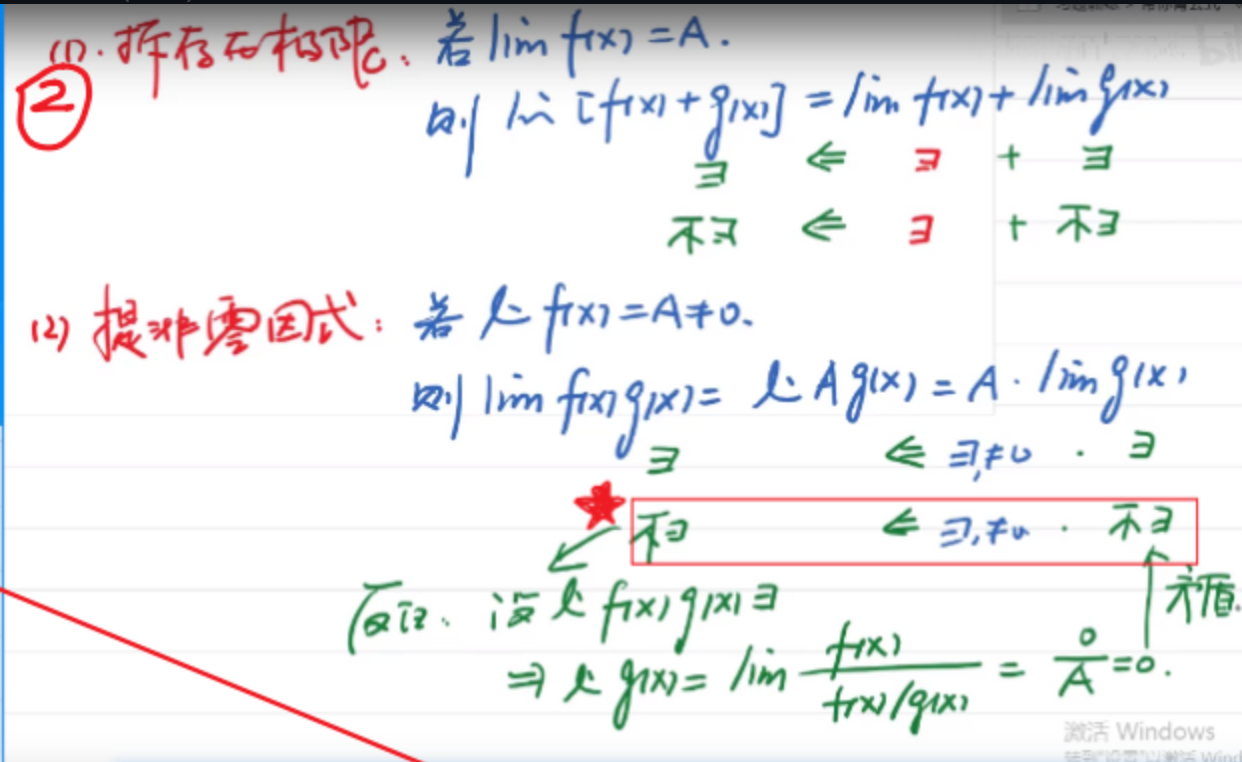 (1). 拆存在极限: 若 lim f(x) = A.
② 则 lim [f(x) + g(x)] = lim f(x) + lim g(x)
∃ ⇐ ∃ + ∃
不∃ ⇐ ∃ + 不∃
(2) 提非零因式: 若 lim f(x) = A ≠ 0.
则 lim f(x) g(x) = lim A g(x) = A · lim g(x)
∃ ⇐ ∃, ≠0 · ∃
★ 不∃ ⇐ ∃, ≠0 · 不∃
反证. 设 lim f(x) g(x) ∃ 矛盾.
⇒ lim g(x) = lim f(x) / f(x)/g(x) = 0/A = 0.
激活 Windows
转到"设置"以激活 Wind